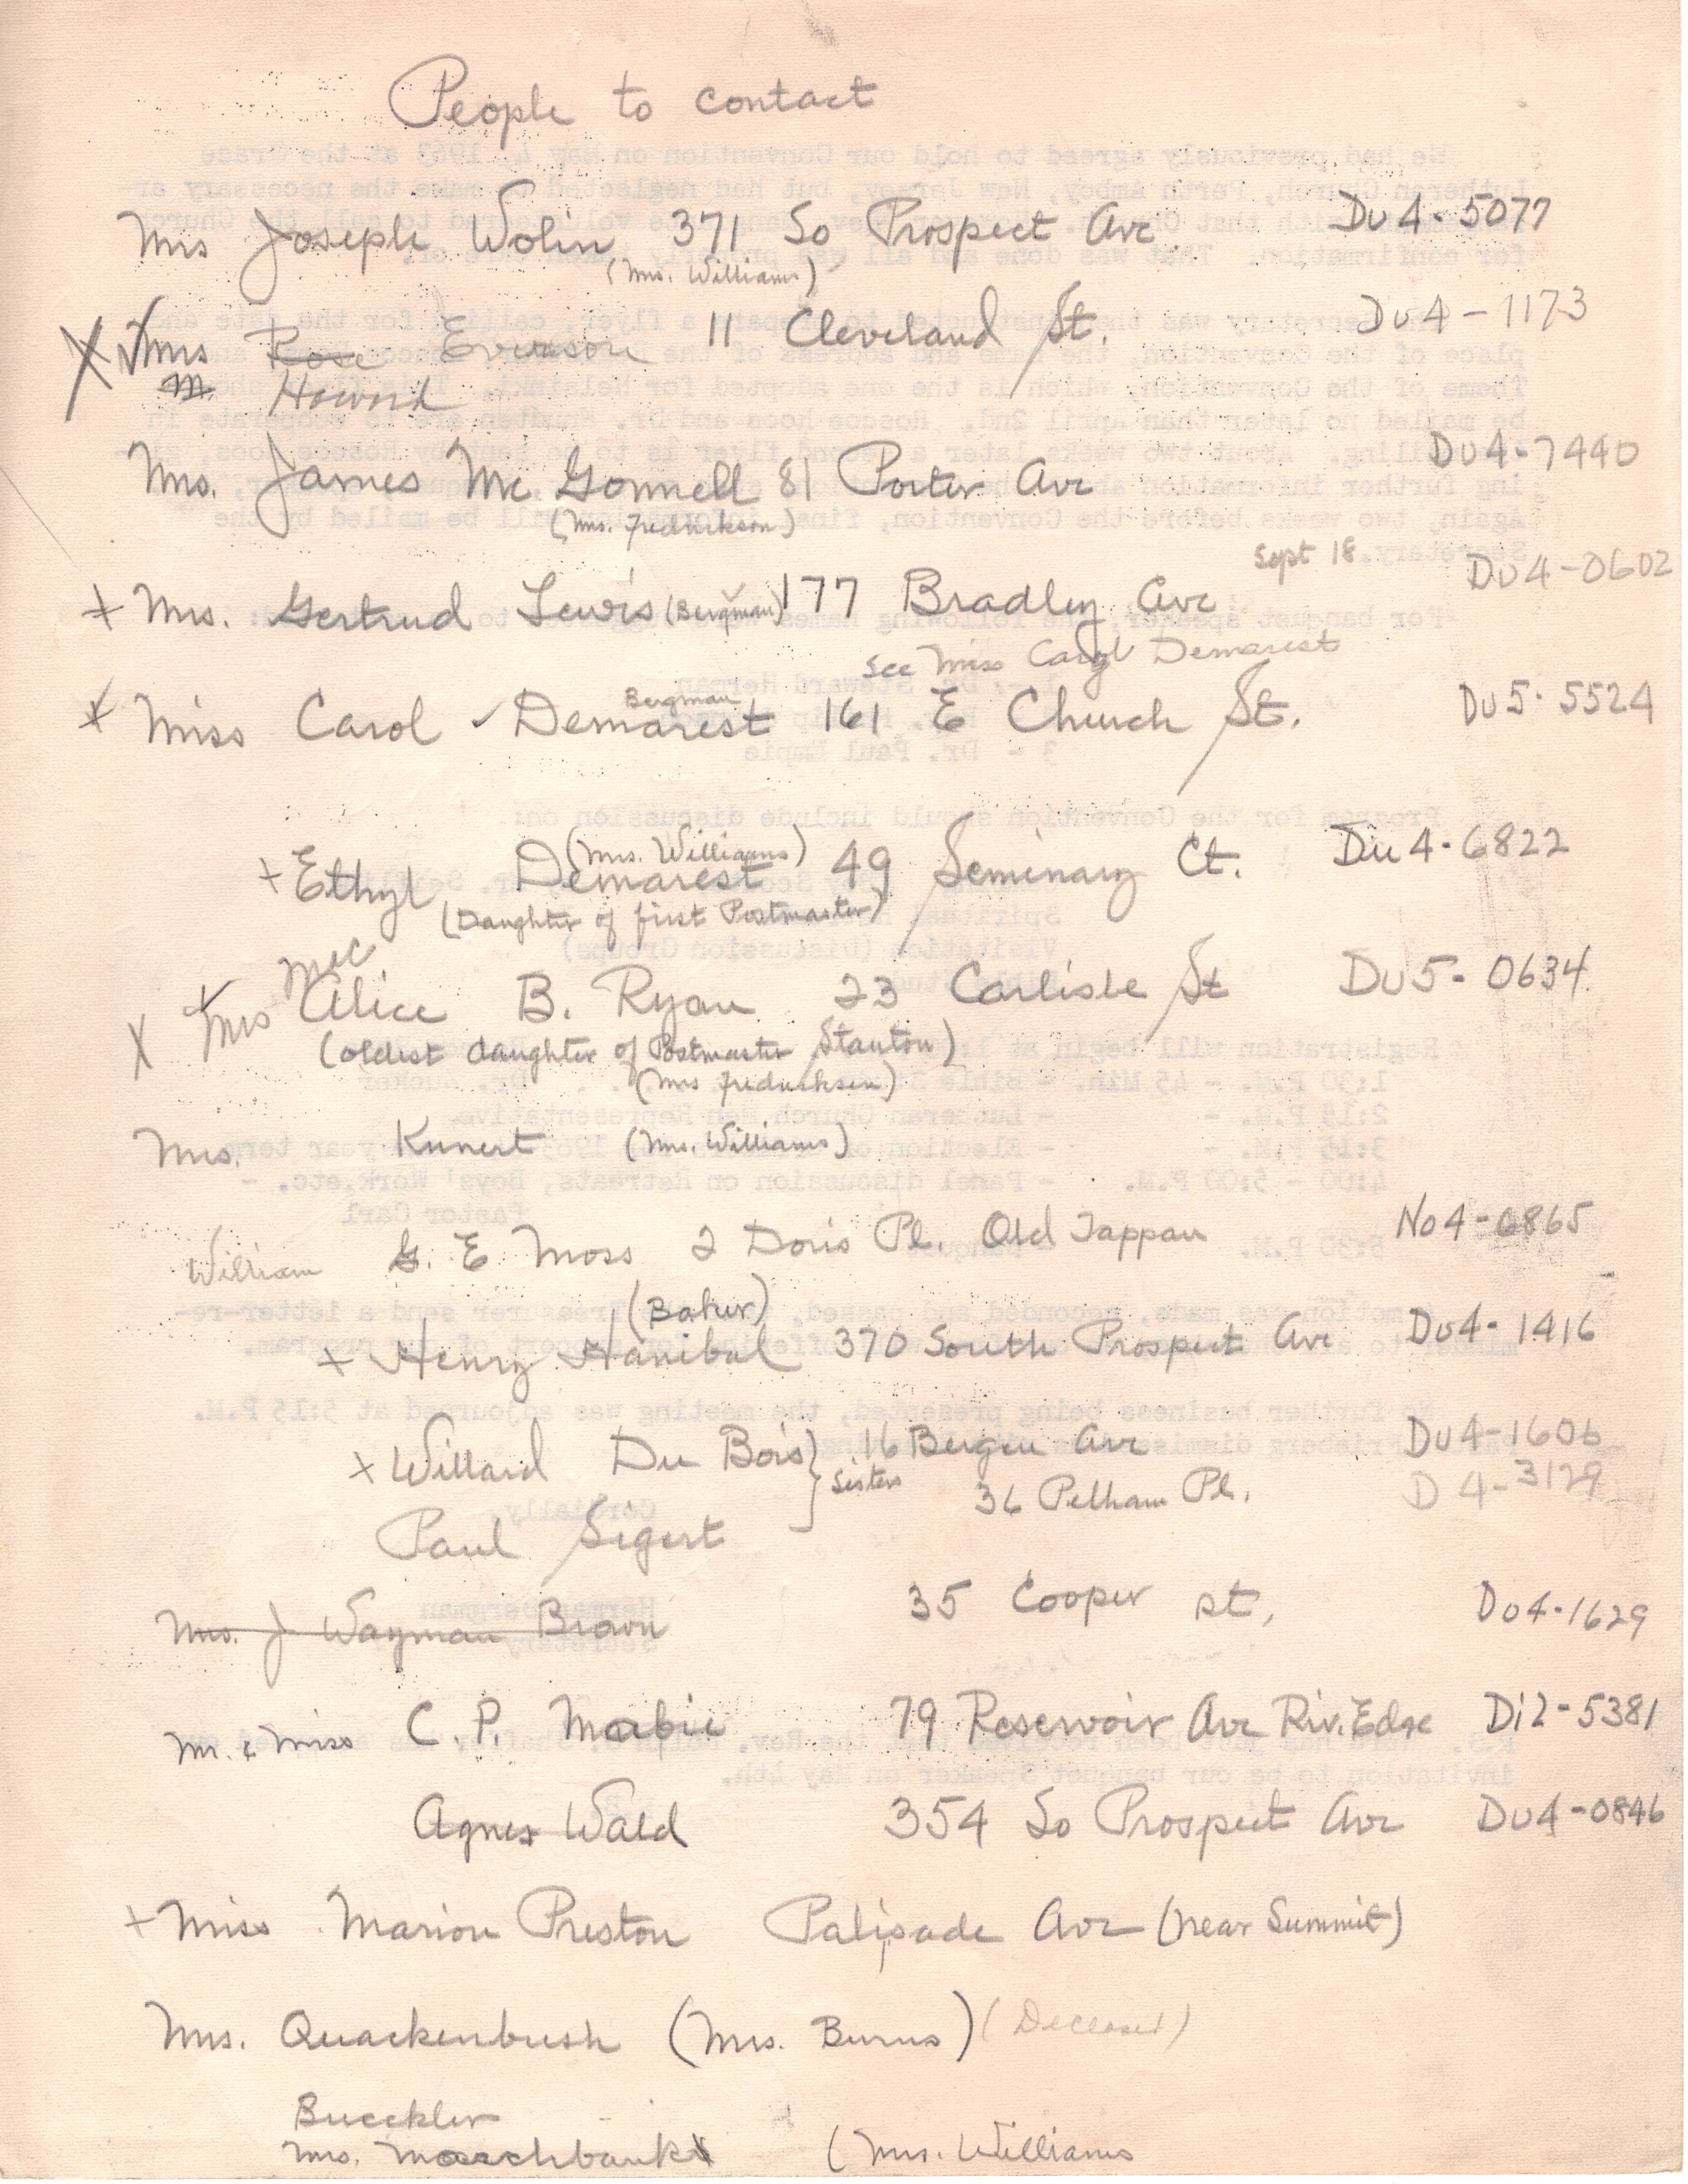 People to contact
Mrs Joseph Wolin 371 So Prospect Ave Du 4-5077
(Mrs. Williams)
X √ Mrs Rose Everson 11 Cleveland St. Du 4-1173
M. Howard
Mrs. James Mc Gonnell 81 Porter Ave Du4-7440
(Mrs. Fredrickson)
Sept 18.
x Mrs. Gertrud Lewis (Bergman) 177 Bradley Ave Du4-0602
See Miss Carol Demarest
Bergman
x Miss Carol ✓ Demarest 161 E Church St. Du5-5524
(Mrs. Williams)
+ Ethyl Demarest 49 Seminary Ct. Du 4-6822
(Daughter of first Postmaster)
Mac
X x Mrs Alice B. Ryan 23 Carlisle St Du5-0634
(oldest daughter of Postmaster Stanton)
(Mrs Fredricksen)
Mrs. Kunert (Mrs. Williams)
William G. E Moss 2 Doris Pl. Old Tappan No4-6865
(Baker)
x Henry Hanibal 370 South Prospect Ave Du4-1416
x Willard Du Bois } 16 Bergen Ave Du4-1606
Sisters 36 Pelham Pl. D 4-3129
Paul Sigert
Mrs. J Wayman Brown 35 Cooper st, Du4-1629
Mr. & Miss C. P. Mabie 79 Reservoir Ave Riv. Edge Di2-5381
Agnes Wald 354 So Prospect Ave Du4-0846
+ Miss Marion Preston Palisade Ave (near Summit)
Mrs. Quackenbush (Mrs. Burns) (Deceased)
Bueckler
Mrs. Marchbanks (Mrs. Williams